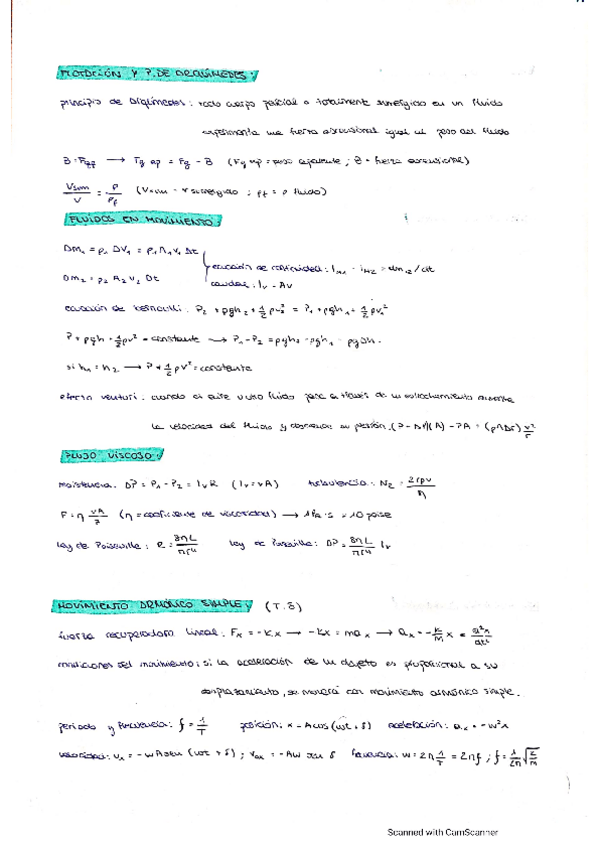 FLOTACIÓN Y P. DE ARQUÍMEDES:
principio de Arquímedes: todo cuerpo parcial o totalmente sumergido en un fluido
experimenta una fuerza ascensional igual al peso del fluido
→ Fg ap = Fg - B (Fg ap = peso aparente ; B = fuerza ascensional)
Vsum/V = ρ/ρf (Vsum = V sumergido ; ρf = ρ fluido)
FLUIDOS EN MOVIMIENTO:
Δm₁ = ρ₁ ΔV₁ = ρ₁ A₁ v₁ Δt
ecuación de continuidad: I_M1 - I_M2 = dm₁₂/dt
Δm₂ = ρ₂ A₂ v₂ Δt
caudal: Iv = Av
ecuación de bernoulli: P₂ + ρgh₂ + ½ρv₂² = P₁ + ρgh₁ + ½ρv₁²
P + ρgh + ½ρv² = constante → P₁ - P₂ = ρgh₂ - ρgh₁ = ρgΔh.
si h₁ = h₂ → P + ½ρv² = constante
efecto venturi: cuando el aire u otro fluido pasa a través de un estrechamiento aumenta
la velocidad del fluido y disminuye su presión.
FLUJO VISCOSO:
resistencia: ΔP = P₁ - P₂ = Iv R (Iv = vA) turbulencia: N_R = 2rρv/η
F = η vA/z (η = coeficiente de viscosidad) → 1Pa·s = 10 poise
Ley de Poiseuille: R = 8ηL/πr⁴ Ley de Poiseuille: ΔP = 8ηL/πr⁴ Iv
MOVIMIENTO ARMÓNICO SIMPLE: (T.8)
fuerza recuperadora lineal: Fx = -Kx → -Kx = max → ax = -K/m x = d²x/dt²
condiciones del movimiento: si la aceleración de un objeto es proporcional a su
desplazamiento, se moverá con movimiento armónico simple.
periodo y frecuencia: f = 1/T posición: x = A cos (ωt + δ) aceleración: ax = -ω²x
velocidad: vx = -ωA sen (ωt + δ) ; vox = -Aω sen δ frecuencia: ω = 2π 1/T = 2πf ; f = 1/2π √K/M
Scanned with CamScanner